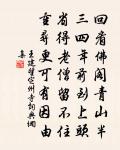 回看佛阁青山半
三四年前到上头
省得老僧留不住
重寻更可有因由
王建望定州寺词典网
集